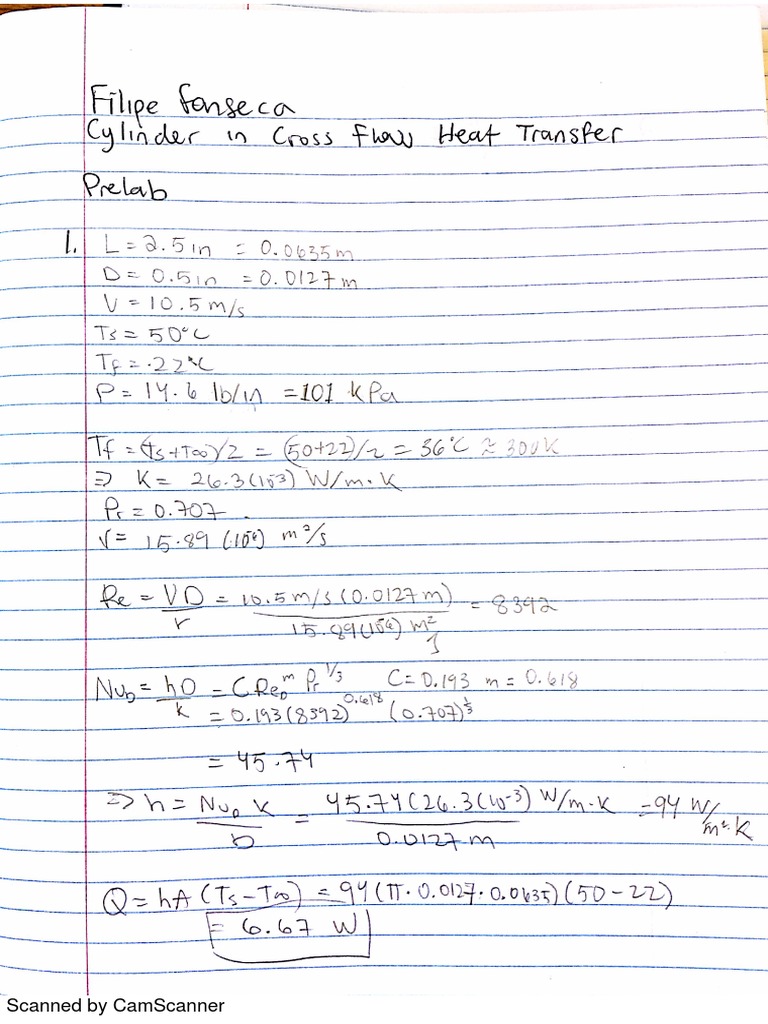 Filipe Fonseca
Cylinder in Cross Flow Heat Transfer
Prelab
1. L = 2.5in = 0.0635m
D = 0.5in = 0.0127m
V = 10.5 m/s
Ts = 50°C
Tf = 22°C
P = 14.6 lb/in = 101 kPa
Tf = (Ts+T∞)/2 = (50+22)/2 = 36°C ≈ 300K
⇒ K = 26.3(10⁻³) W/m·K
Pr = 0.707
ν = 15.89 (10⁻⁶) m²/s
Re = VD/ν = 10.5 m/s (0.0127 m) / 15.89(10⁻⁶) m²/s = 8392
Nu_D = hD/k = C Re_D^m Pr^1/3 C = 0.193 m = 0.618
= 0.193(8392)^0.618 (0.707)^1/3
= 45.74
⇒ h = Nu_D K / D = 45.74(26.3(10⁻³) W/m·K / 0.0127 m = 94 W/m²·K
Q = hA (Ts-T∞) = 94(π·0.0127·0.0635)(50-22)
= 6.67 W
Scanned by CamScanner